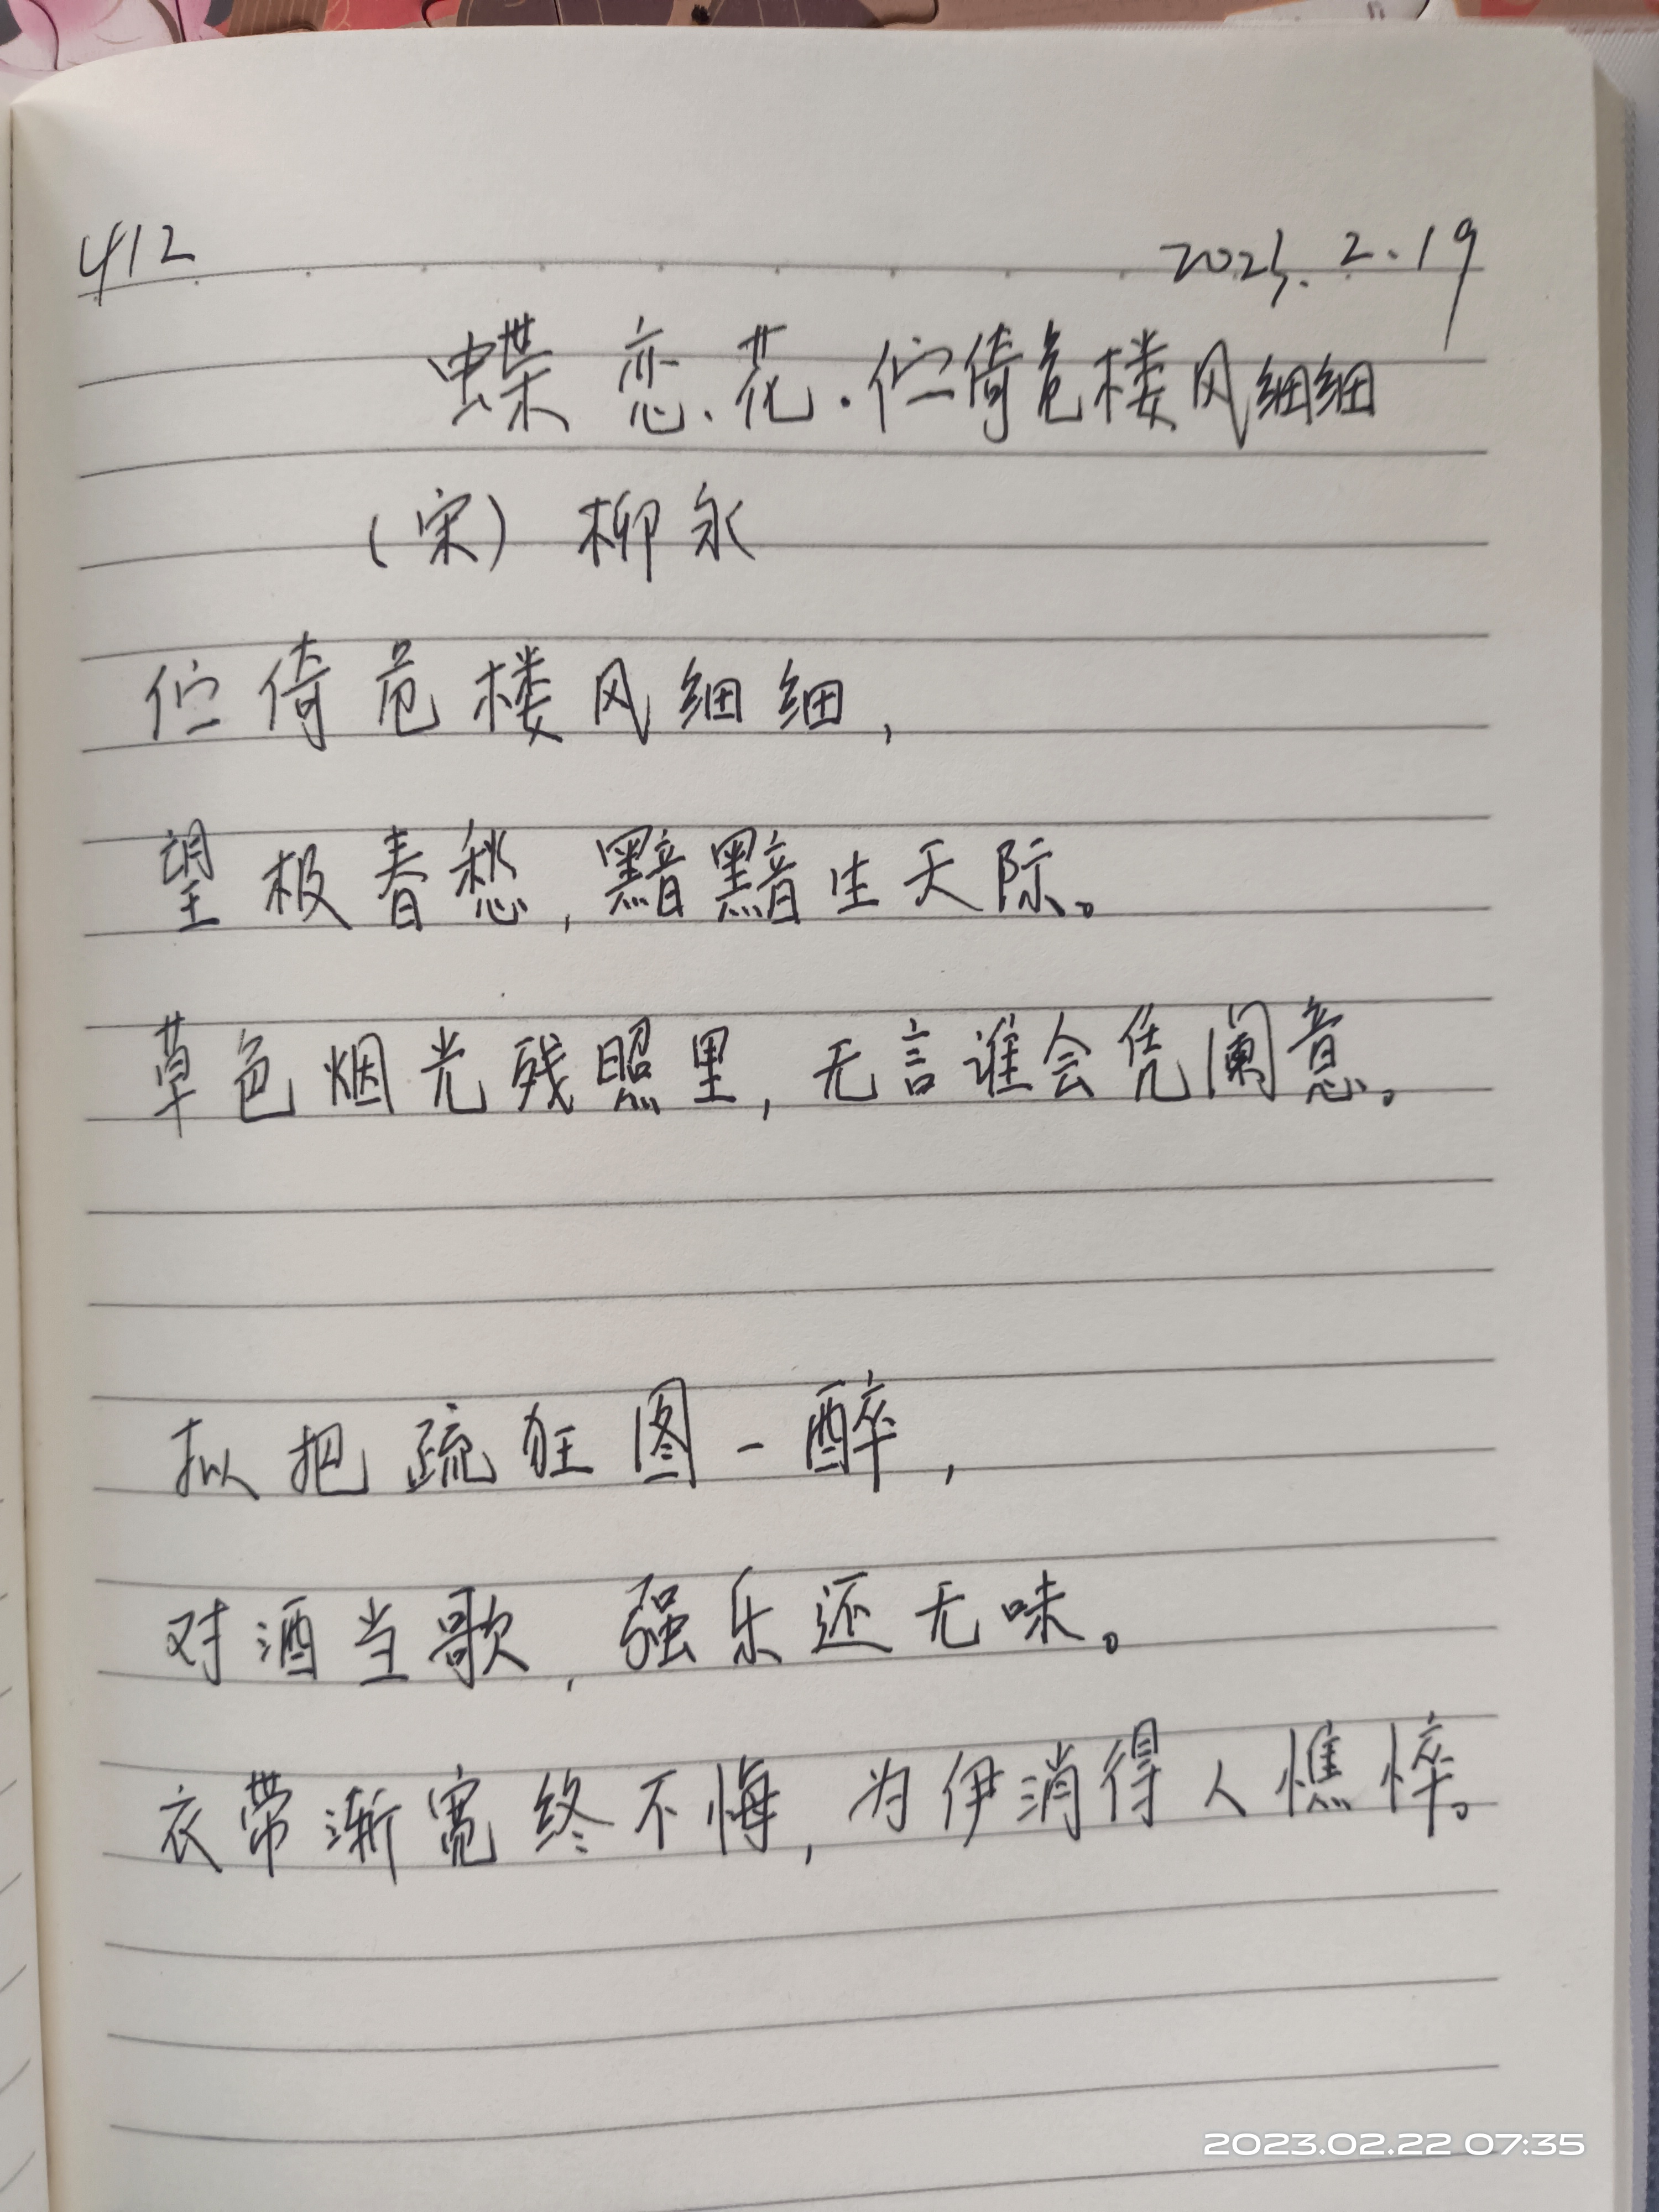 412 2023.2.19
蝶恋花·伫倚危楼风细细
(宋) 柳永
伫倚危楼风细细,
望极春愁,黯黯生天际。
草色烟光残照里,无言谁会凭阑意。
拟把疏狂图一醉,
对酒当歌,强乐还无味。
衣带渐宽终不悔,为伊消得人憔悴。
2023.02.22 07:35